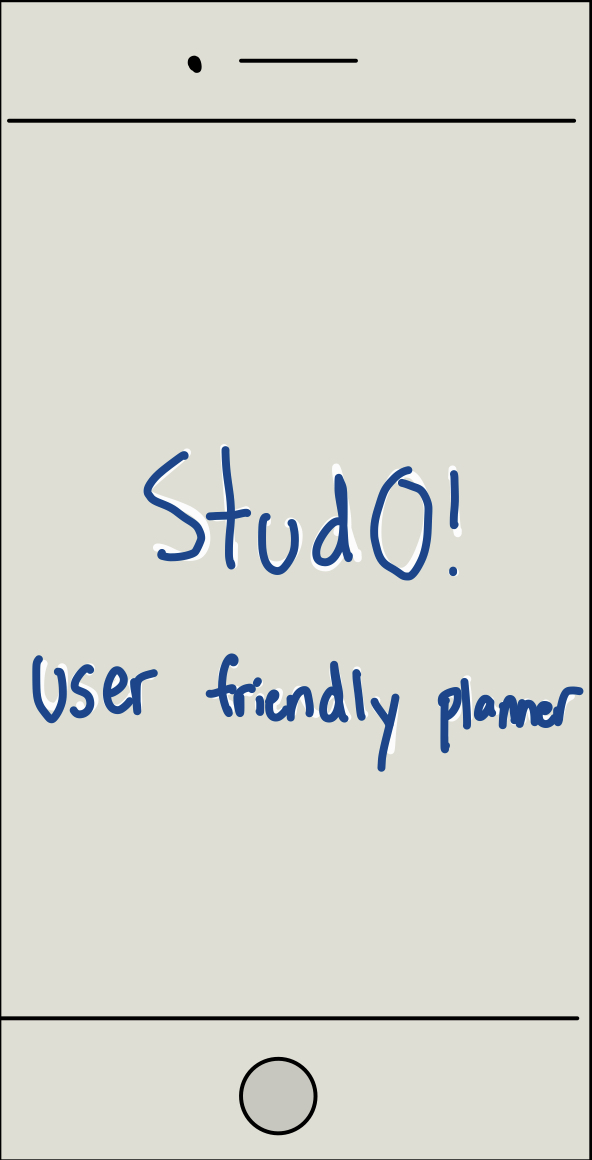 StudO!
user friendly planner